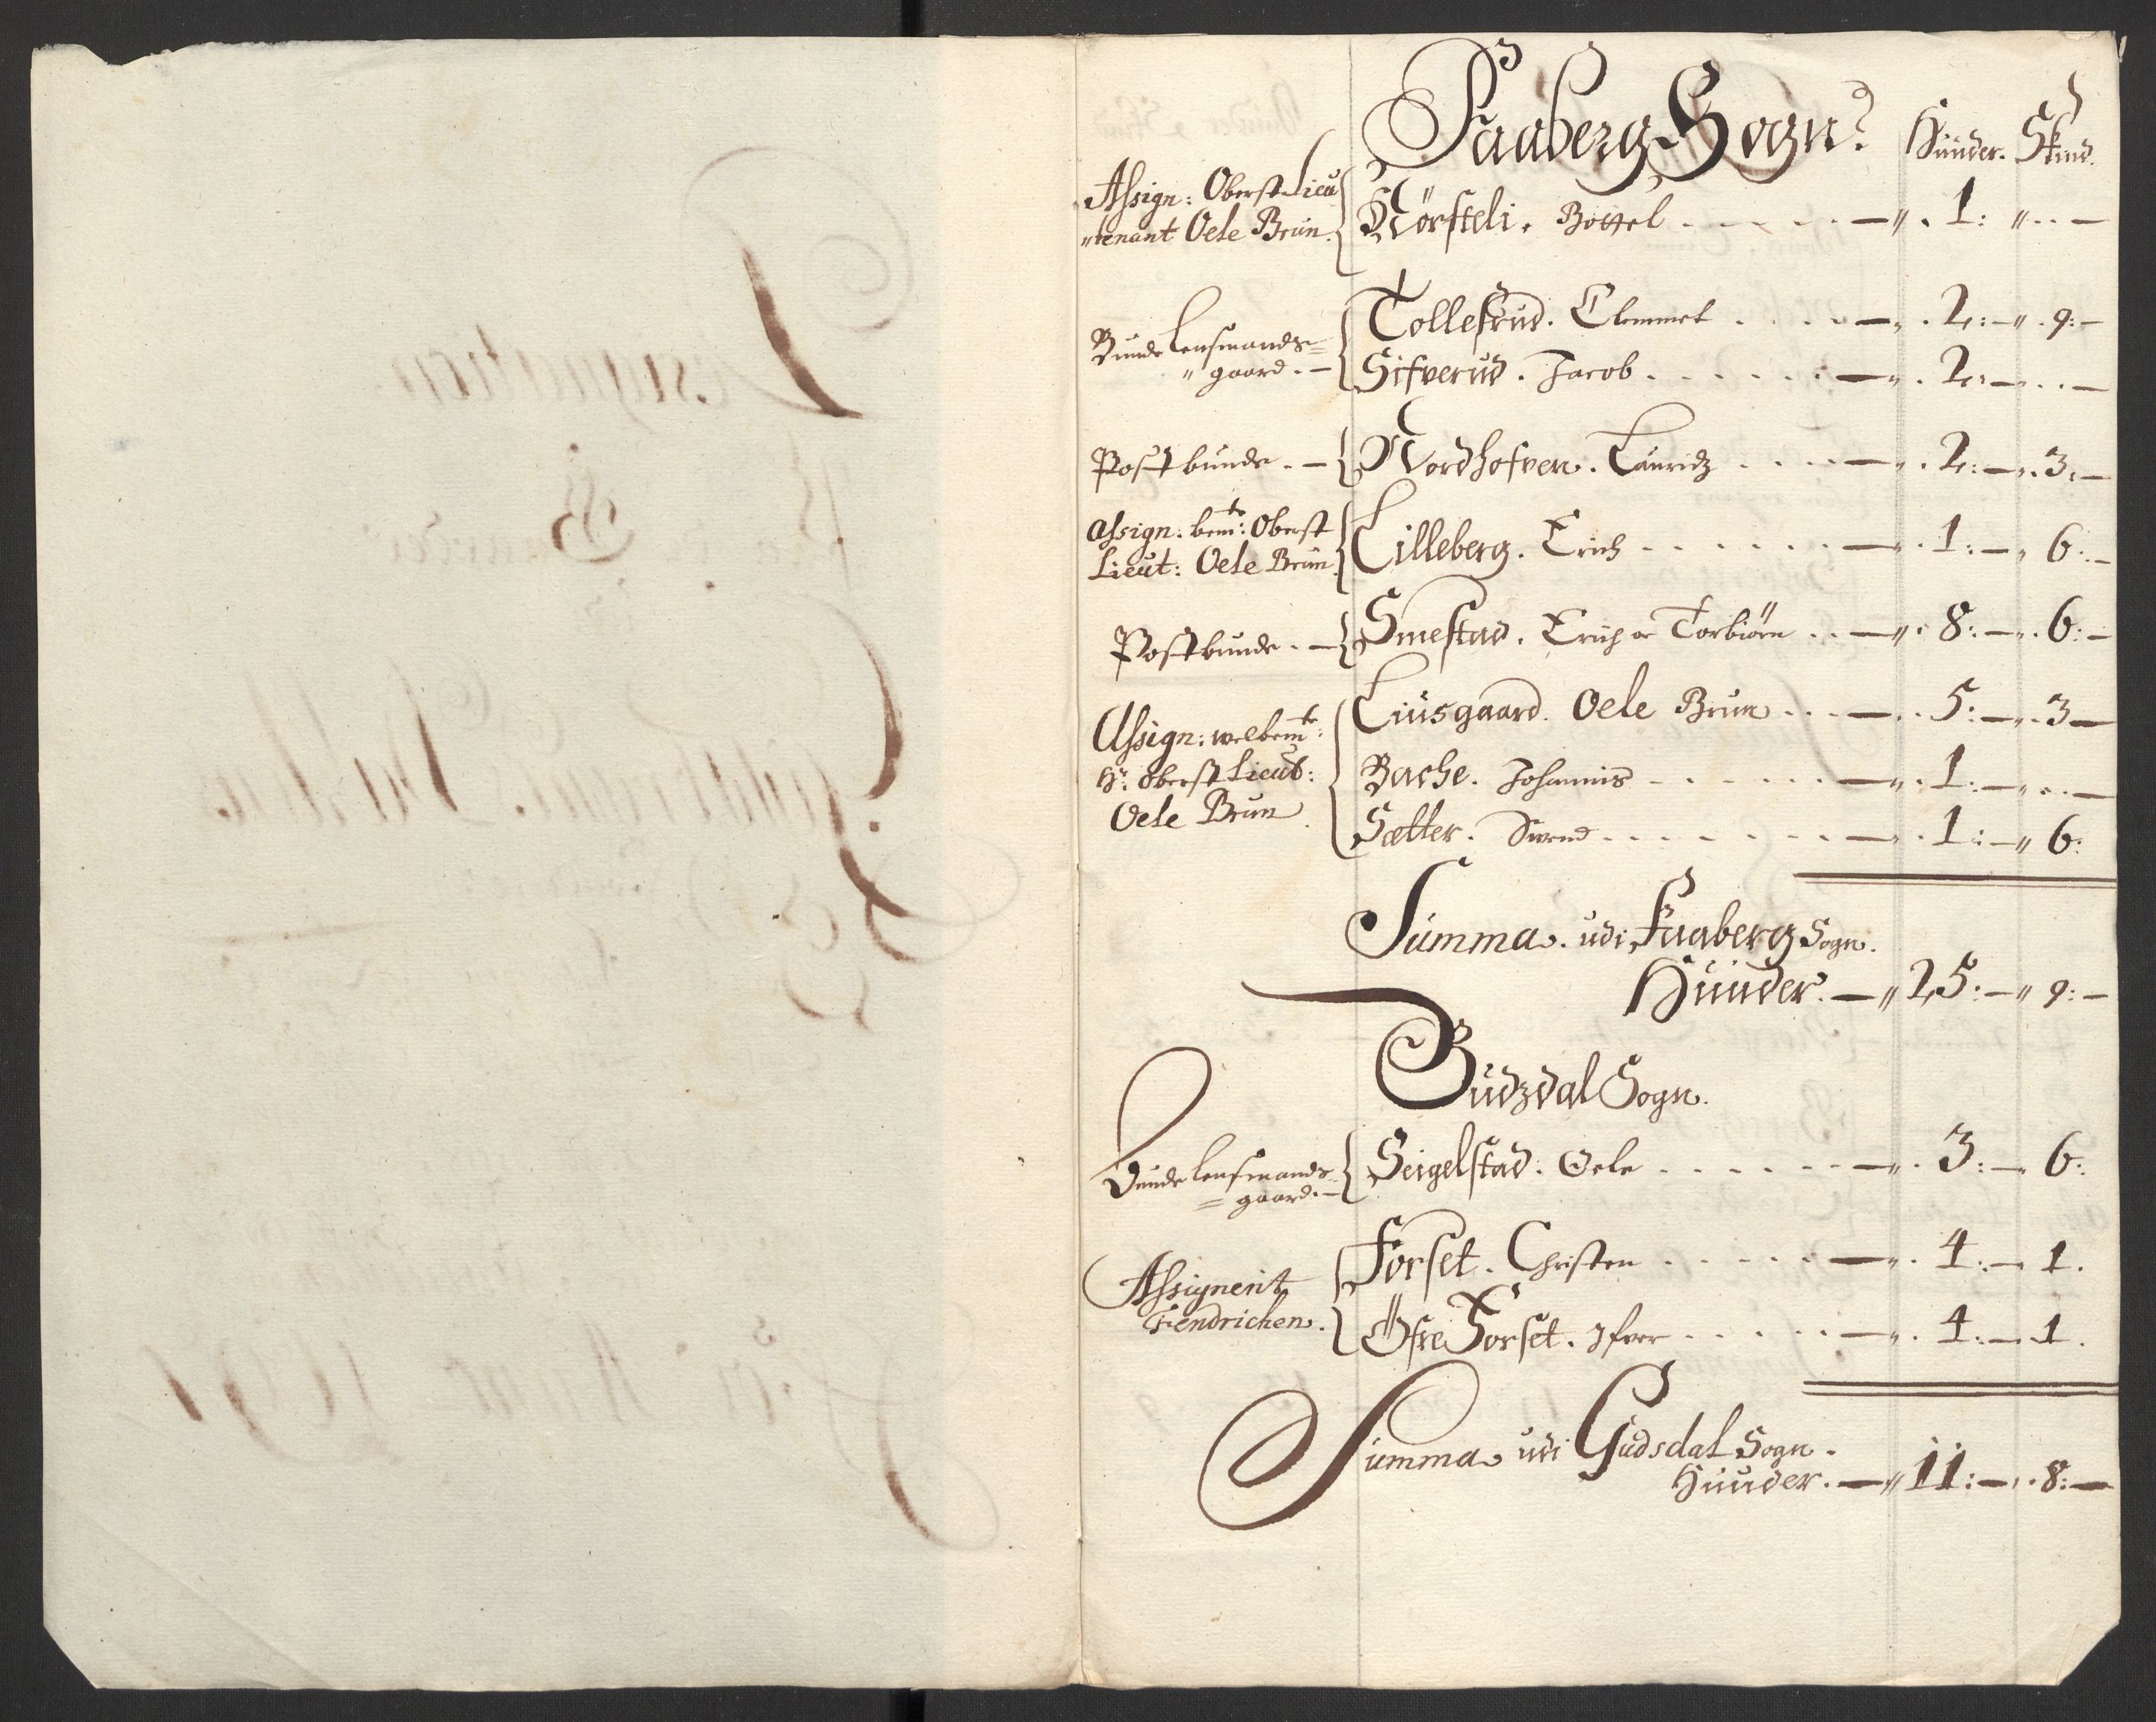 Faaberg Sogn. Hünder. Skind.
Assign: Oberst Lieu
"tenant Oele Brün. Nörsteli. Bottel - 1: "
Bunde Lensmands=
"gaard. Tollefrud. Clemmet - 2: 9:
Sifverud. Jacob - 2:
Postbunde. Nordhofven. Lauridz - 2: 3.
Assign: bemte: Oberst
Lieut: Oele Brün Lilleberg. Erich - 1: 6:
Postbunde. Smestad. Erich oc Torbiörn - 8: 6:
Assign: welbemte:
Hr: Oberst Lieut:
Oele Brun Liusgaard. Oele Brun - 5: 3
Bache. Johannis - 1:
Sætter. Swend - 1: 6:
Summa. udi Faaberg Sogn.
Hünder. 25: 9:
Gudzdal Sogn.
Bunde Lensmands
=gaard. Seigelstad. Oele - 3: 6:
Assignerit
Fendrichen. Forset. Christen - 4: 1.
Öfre Forset. Ifver - 4: 1.
Summa udi Gudsdal Sogn.
Hünder. 11: 8: